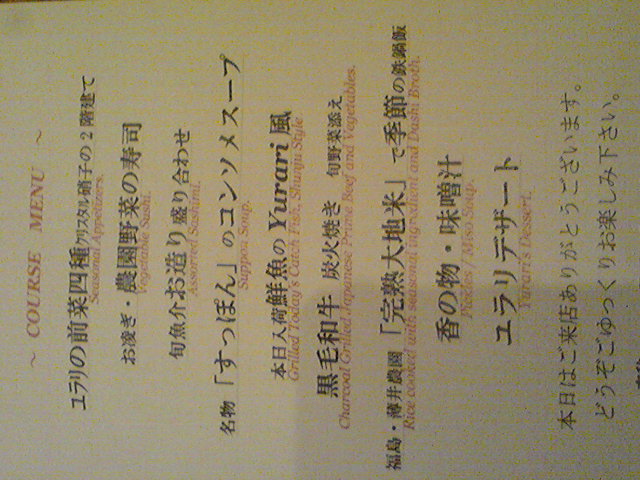 ~ COURSE MENU ~
ユラリの前菜四種クリスタル硝子の2階建て
Seasonal Appetizers.
お凌ぎ・農園野菜の寿司
Vegetable Sushi.
旬魚介お造り盛り合わせ
Assorted Sashimi.
名物「すっぽん」のコンソメスープ
Suppon Soup.
本日入荷鮮魚のYurari風
Grilled Today's Catch Fish, Shunju Style
黒毛和牛 炭火焼き 旬野菜添え
Charcoal Grilled Japanese Prime Beef and Vegetables.
福島・薄井農園「完熟大地米」で季節の鉄鍋飯
Rice cooked with seasonal ingredient and Dashi Broth.
香の物・味噌汁
Pickles / Miso Soup.
ユラリデザート
Yurari's Dessert.
本日はご来店ありがとうございます。
どうぞごゆっくりお楽しみ下さい。